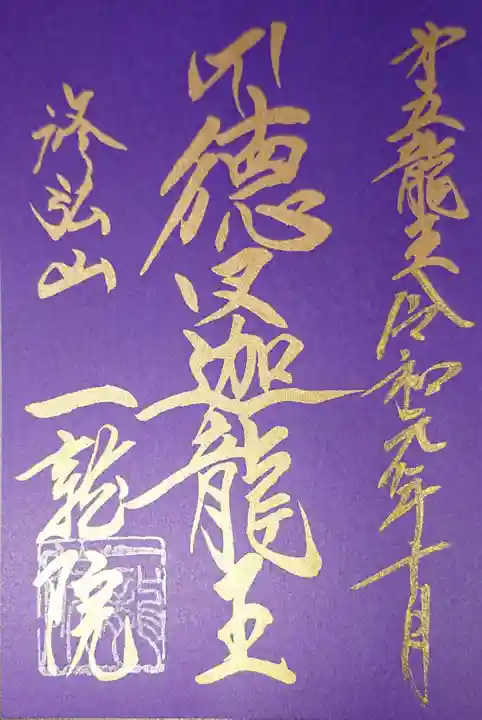 第五龍王 令和元年十月
徳叉迦龍王
修弘山
一龍院